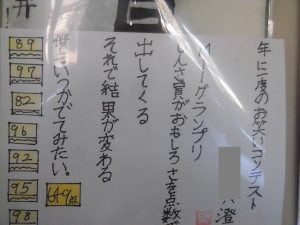 年に一度のお笑いコンテスト
八澄
M-1グランプリ
しんさ員がおもしろさを点数で
出してくる
それで結果が変わる
僕もいつかでてみたい。
89
97
82
96
92
95
98
649点